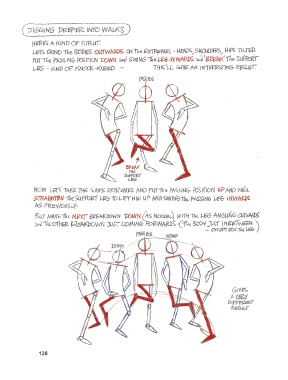 DIGGING DEEPER INTO WALKS
HERE'S A KIND OF STRUT.
LET'S BEND THE BODIES OUTWARDS ON THE EXTREMES - HEADS, SHOULDERS, HIPS TILTED
PUT THE PASSING POSITION DOWN and SWING THE LEG INWARDS and 'BREAK' THE SUPPORT
LEG - KIND OF KNOCK-KNEED - THIS'LL GIVE AN INTERESTING RESULT.
PASS POS
BREAK
THE
SUPPORT
LEG
NOW LET'S TAKE THE SAME EXTREMES AND PUT the PASSING POSITION UP AND WE'LL
STRAIGHTEN the SUPPORT LEG TO LIFT HIM UP AND SWING the PASSING LEG INWARDS
AS PREVIOUSLY.
BUT MAKE THE NEXT BREAKDOWN DOWN (AS NORMAL) WITH the LEG OUTWARDS
and THE OTHER BREAKDOWN JUST COMING FORWARDS. (THE BODY JUST INBETWEEN)
- EXCEPT FOR the LEG
PASS POS
DOWN
GIVES
A VERY
DIFFERENT
RESULT
128